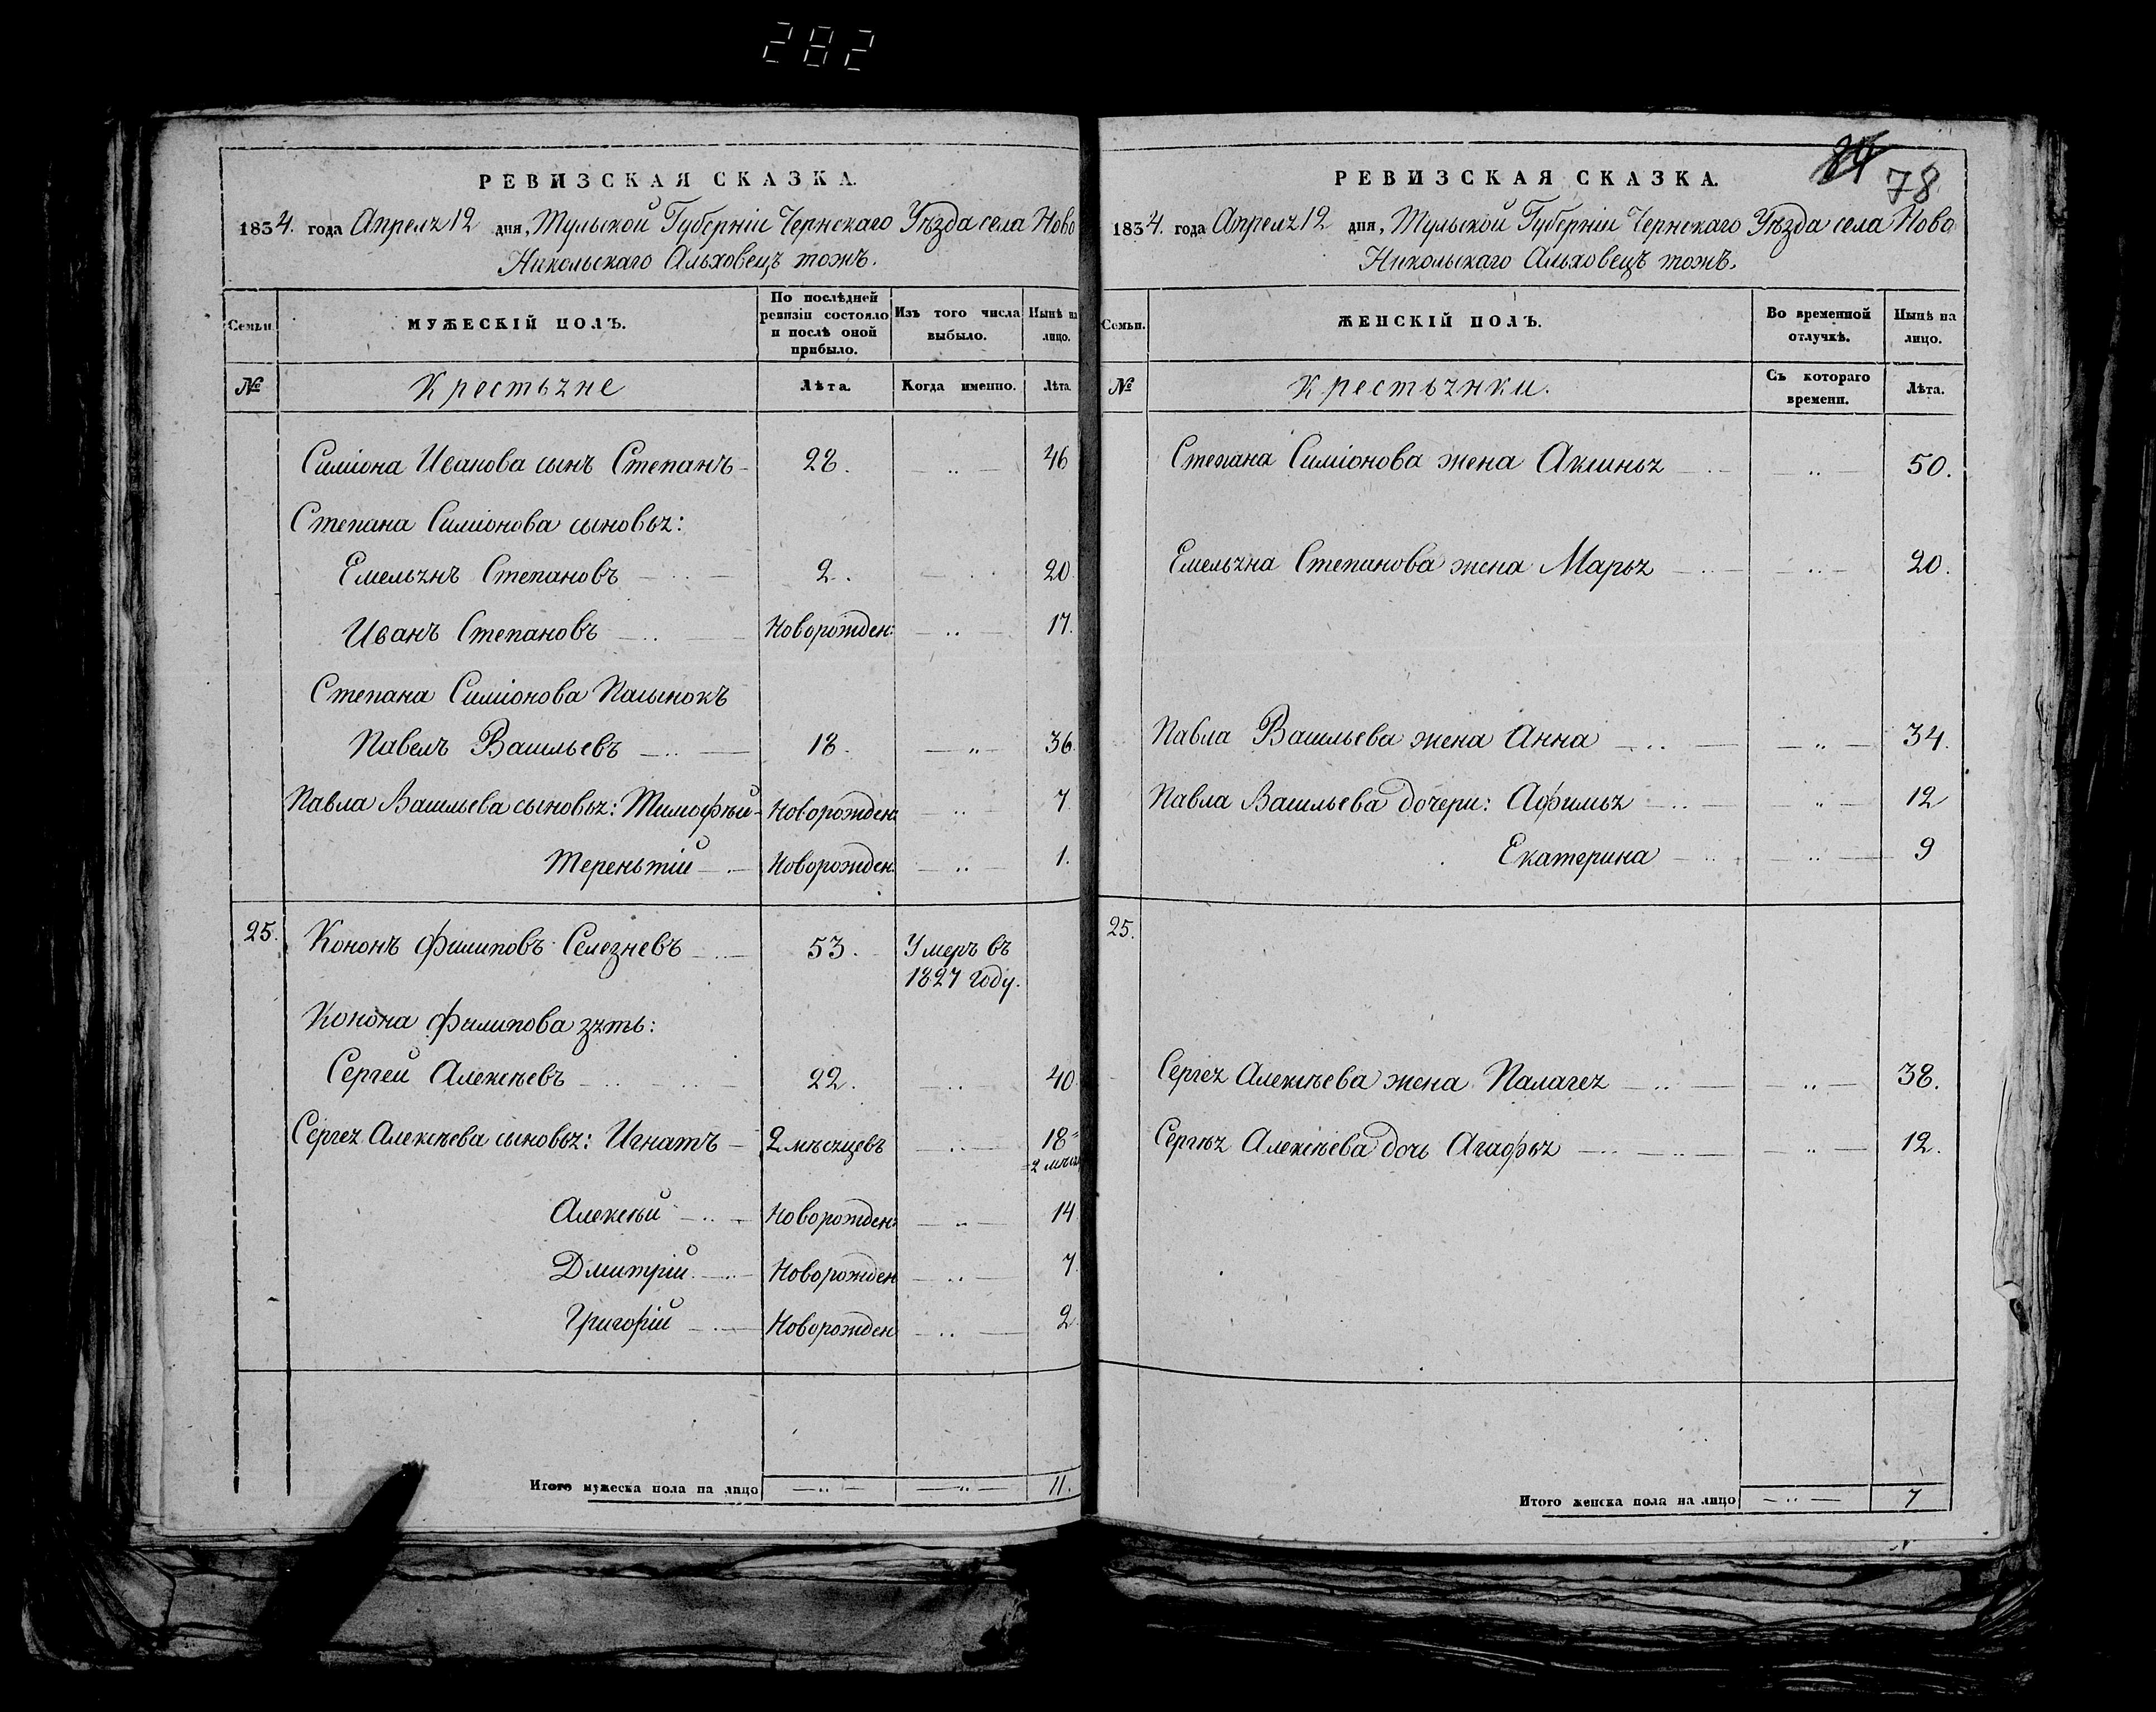 282
РЕВИЗСКАЯ СКАЗКА.
1834. года Апреля 12 дня, Тульской Губерніи Чернскаго Уѣзда села Ново
Никольскаго Альховецъ тожъ.
Семьи.
МУЖЕСКІЙ ПОЛЪ.
По послѣдней ревизіи состояло и послѣ оной прибыло.
Изъ того числа выбыло.
Нынѣ на лицо.
№
Крестьяне
Лѣта.
Когда именно.
Лѣта.
Симіона Иванова сынъ Степанъ 28. 46
Степана Симіонова сыновья:
Емельянъ Степановъ 2. 20
Иванъ Степановъ Новорожден: 17.
Степана Симіонова Пасынокъ
Павелъ Васильевъ 18. 36.
Павла Васильева сыновья: Тимофѣй Новорожден: 7
Терентій Новорожден: 1.
25. Кононъ Филиповъ Селезневъ 53. Умеръ въ
1827 году.
Конона Филипова зять:
Сергей Алексѣевъ 22. 40
Сергея Алексѣева сыновья: Игнатъ 2 мѣсяцевъ 18
Алексѣй Новорожден: 14
Дмитрій Новорожден 7.
Григорій Новорожден 2
Итого мужеска пола на лицо 11.
84 78
РЕВИЗСКАЯ СКАЗКА.
1834. года Апреля 12 дня, Тульской Губерніи Чернскаго Уѣзда села Ново
Никольскаго Альховецъ тожъ.
Семьи.
ЖЕНСКІЙ ПОЛЪ.
Во временной отлучкѣ.
Нынѣ на лицо.
№
Крестьянки.
Съ котораго времени.
Лѣта.
Степана Симіонова жена Аксинья 50.
Емельяна Степанова жена Марья 20.
Павла Васильева жена Анна 34.
Павла Васильева дочери: Афимья 12
Екатерина 9
25.
Сергея Алексѣева жена Палагея 38.
Сергѣя Алексѣева дочь Агафья 12.
Итого женска пола на лицо 7